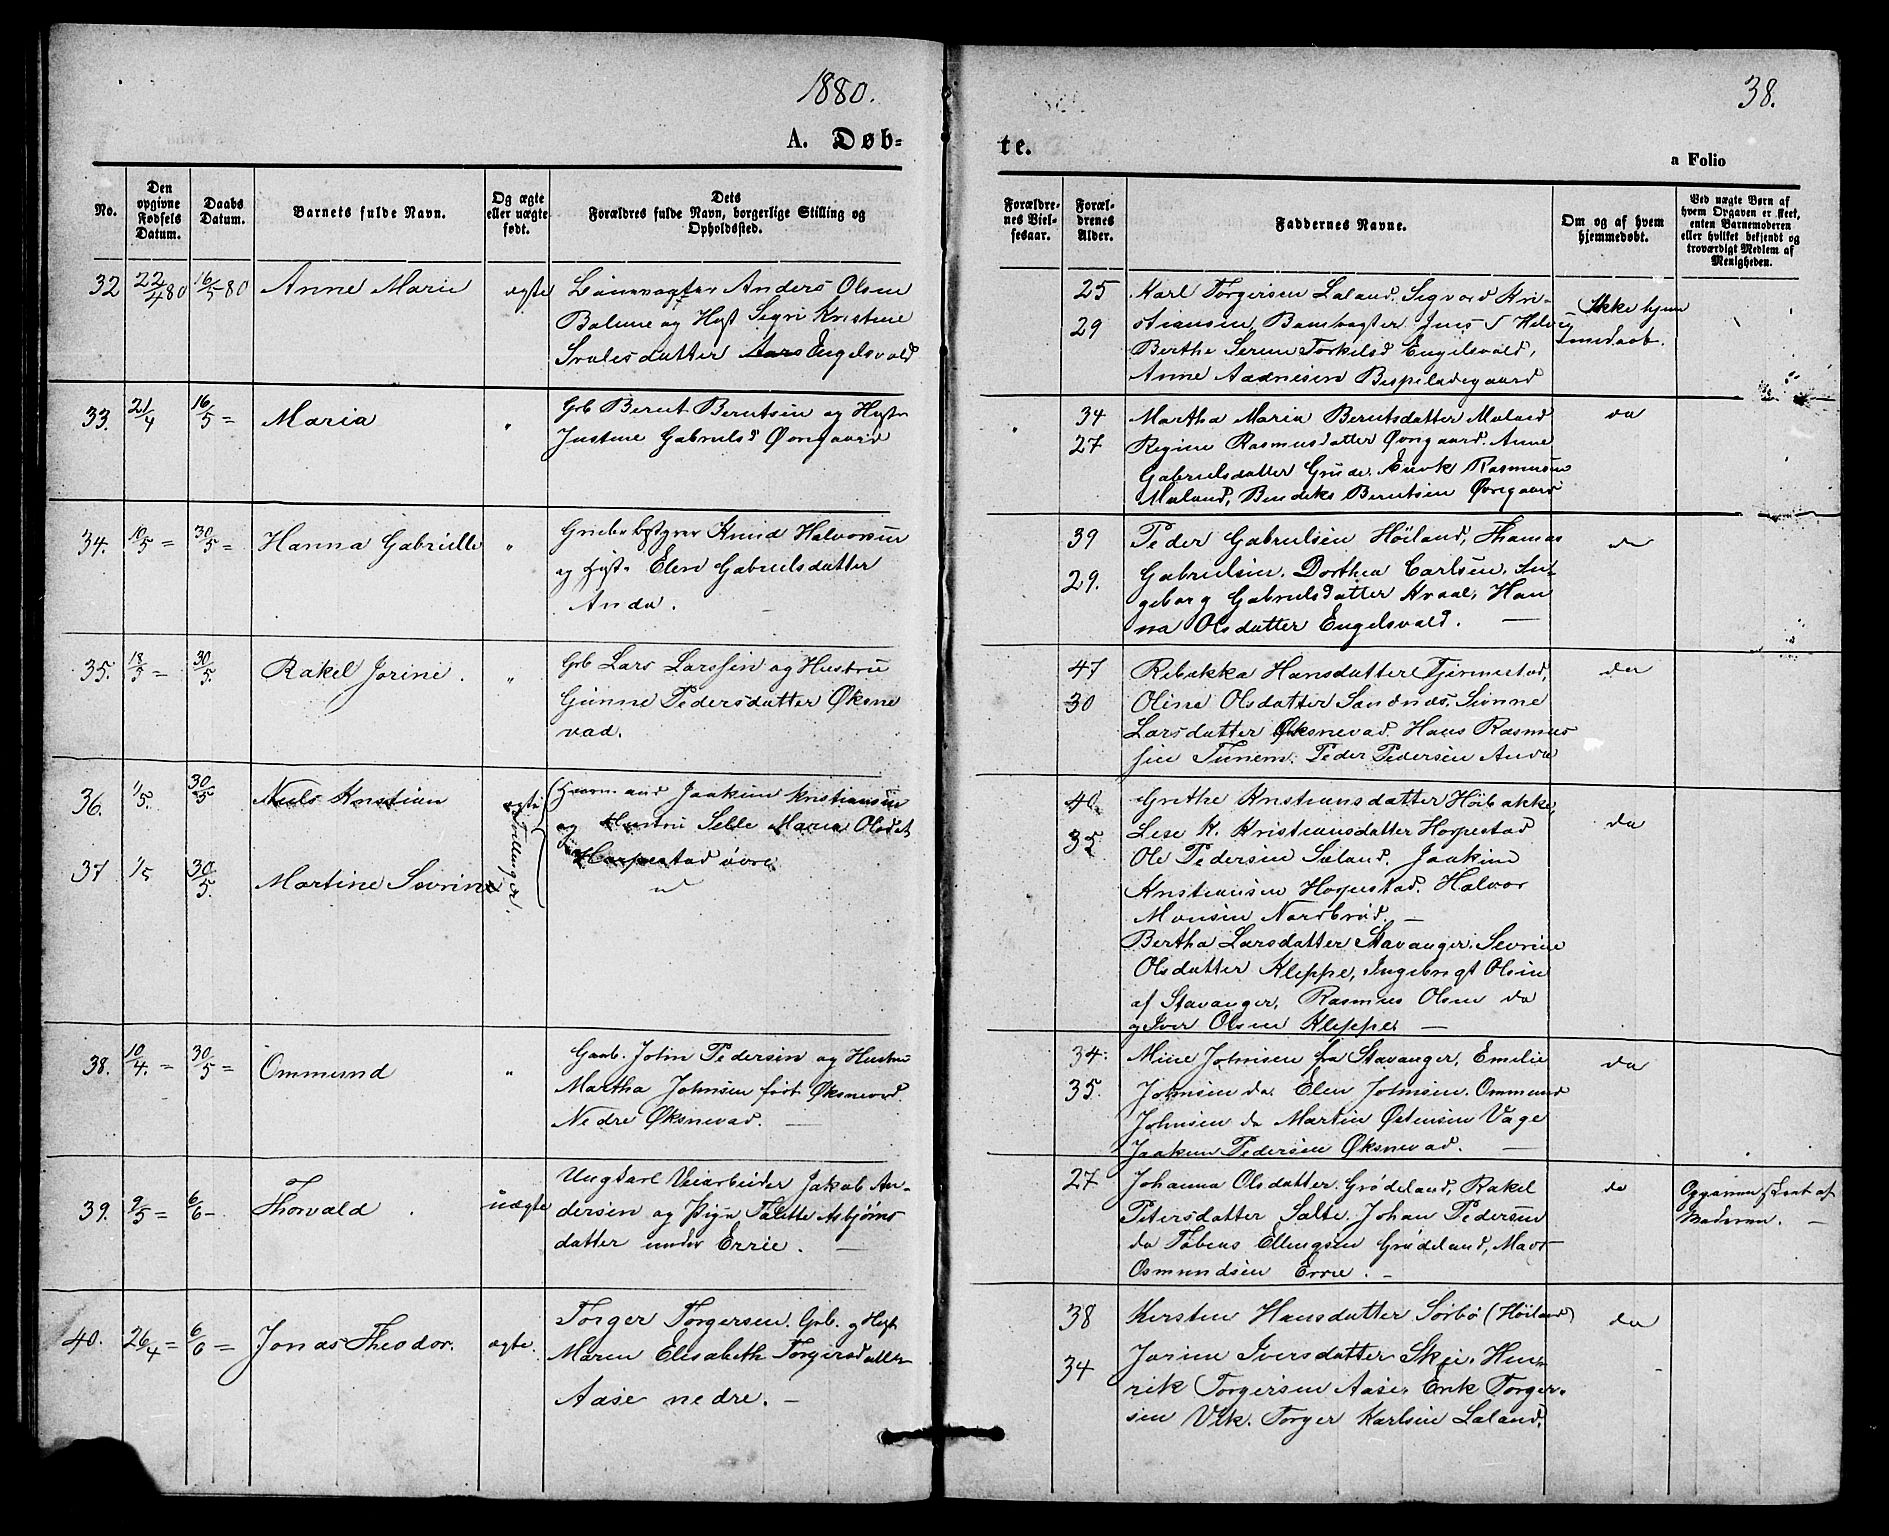 1880.
38.
A. Døb-
te.
a Folio
No.
Den opgivne Fødsels Datum.
Daabs Datum.
Barnets fulde Navn.
Og ægte eller uægte født.
Dets Forældres fulde Navn, borgerlige Stilling og Opholdssted.
Forældrenes Vielsesaar.
Forældrenes Alder.
Faddernes Navne.
Om og af hvem hjemmedøbt.
Ved uægte Børn af hvem Opgaven er skeet, enten Barnemoderen eller hvilket bekjendt og troværdigt Medlem af Menigheden.
32 22/4 80 16/5 80 Anne Marie ægte
Anders Olsen
og Hust Kristine
datter Engelsvold
25
29
Karl Torgersen Laland, Sigvord Kri-
stiansen, Banevogter Jens
Berthe Torkelsd Engelsvold,
Anne
Ikke hjem
medøbt.
33. 21/4 16/5 = Maria "
Grb Bernt Berntsen og Hust
Justine Gabrielsd Øvregaard
34
27
Martha Maria Berntsdatter Maland
Regine Rasmusdatter Øvregaard. Anne
Gabrielsdatter Grude, Enok Rasmusen
Maland, Bendiks Berntsen Øvregaard
do
34. 10/5 = 30/5 = Hanna Gabrielle "
Knud Halvorsen
og Hust. Elen Gabrielsdatter
Anda.
39
29.
Peder Gabrielsen Höiland, Thomas
Gabrielsen. Dorthea Carlsen. In-
geborg Gabrielsdatter Kvaal, Han
na Olsdatter Engelsvold. —
do
35. 18/5 = 30/5. Rakel Jorine. "
Grb Lars Larssen og Hustru
Gunne Pedersdatter Øksne
vad.
47
30
Rebekka Hansdatter Tjermestad,
Oline Olsdatter Sandnæs,
Larsdatter Øksnevad, Hans Rasmus
sen Tunem. Peder Pedersen Anda
do
36. 1/5. 30/5 Niels Kristian
37 1/5 30/5. Martine Sevrine
ægte Tvillinger.
Jaakim Kristiansen
og Hustru Maria Olsdat
Horpestad övre
40.
35
Grethe Kristiansdatter Höibakke,
Lise K. Kristiansdatter Horpestad
Ole Pedersen Sæland. Jaakim
Kristiansen Horpestad. Halvor
Monsen Nordbrød. —
Bertha Larsdatter Stavanger, Sevrine
Olsdatter Kleppe, Ingebrigt Olsen
af Stavanger, Rasmus Olsen do
og Iver Olsen Kleppe. —
do
38. 10/4. = 30/5 = Ommund "
Gaab. John Pedersen og Hustru
Martha Johnsen født Øksnevad.
Nedre Øksnevad. —
34.
35.
Mine Johnsen fra Stavanger, Emilie
Johnsen do. Elen Johnsen. Ommund
Johnsen do Martin Østensen Vage
Jaakim Pedersen Øksnevad. —
do
39. 9/5 = 6/6 - Thorvald. uægte
Ungkarl Veiarbeider Jakob An-
dersen og Pige Talette Asbjørns
datter under Errie. —
27
Johanna Olsdatter Grödeland, Rakel
Petersdatter Salte. Johan Pedersen
do Tobias Ellingsen Grödeland,
Osmundsen Errie. -
do
Opgaven skeet af
Moderen. —
40. 26/4 = 6/6 = Jonas Theodor. ægte.
Torger Torgersen. Grb. og Hust
Maren Elisabeth Torgersdatter
Aase nedre. —
38
34
Kirsten Hansdatter Sörbö (Höiland)
Jorine Iversdatter Skjei. Hen-
rik Torgersen Aase. Erik Torger-
sen Vik. Torger Karlsen Laland.
do